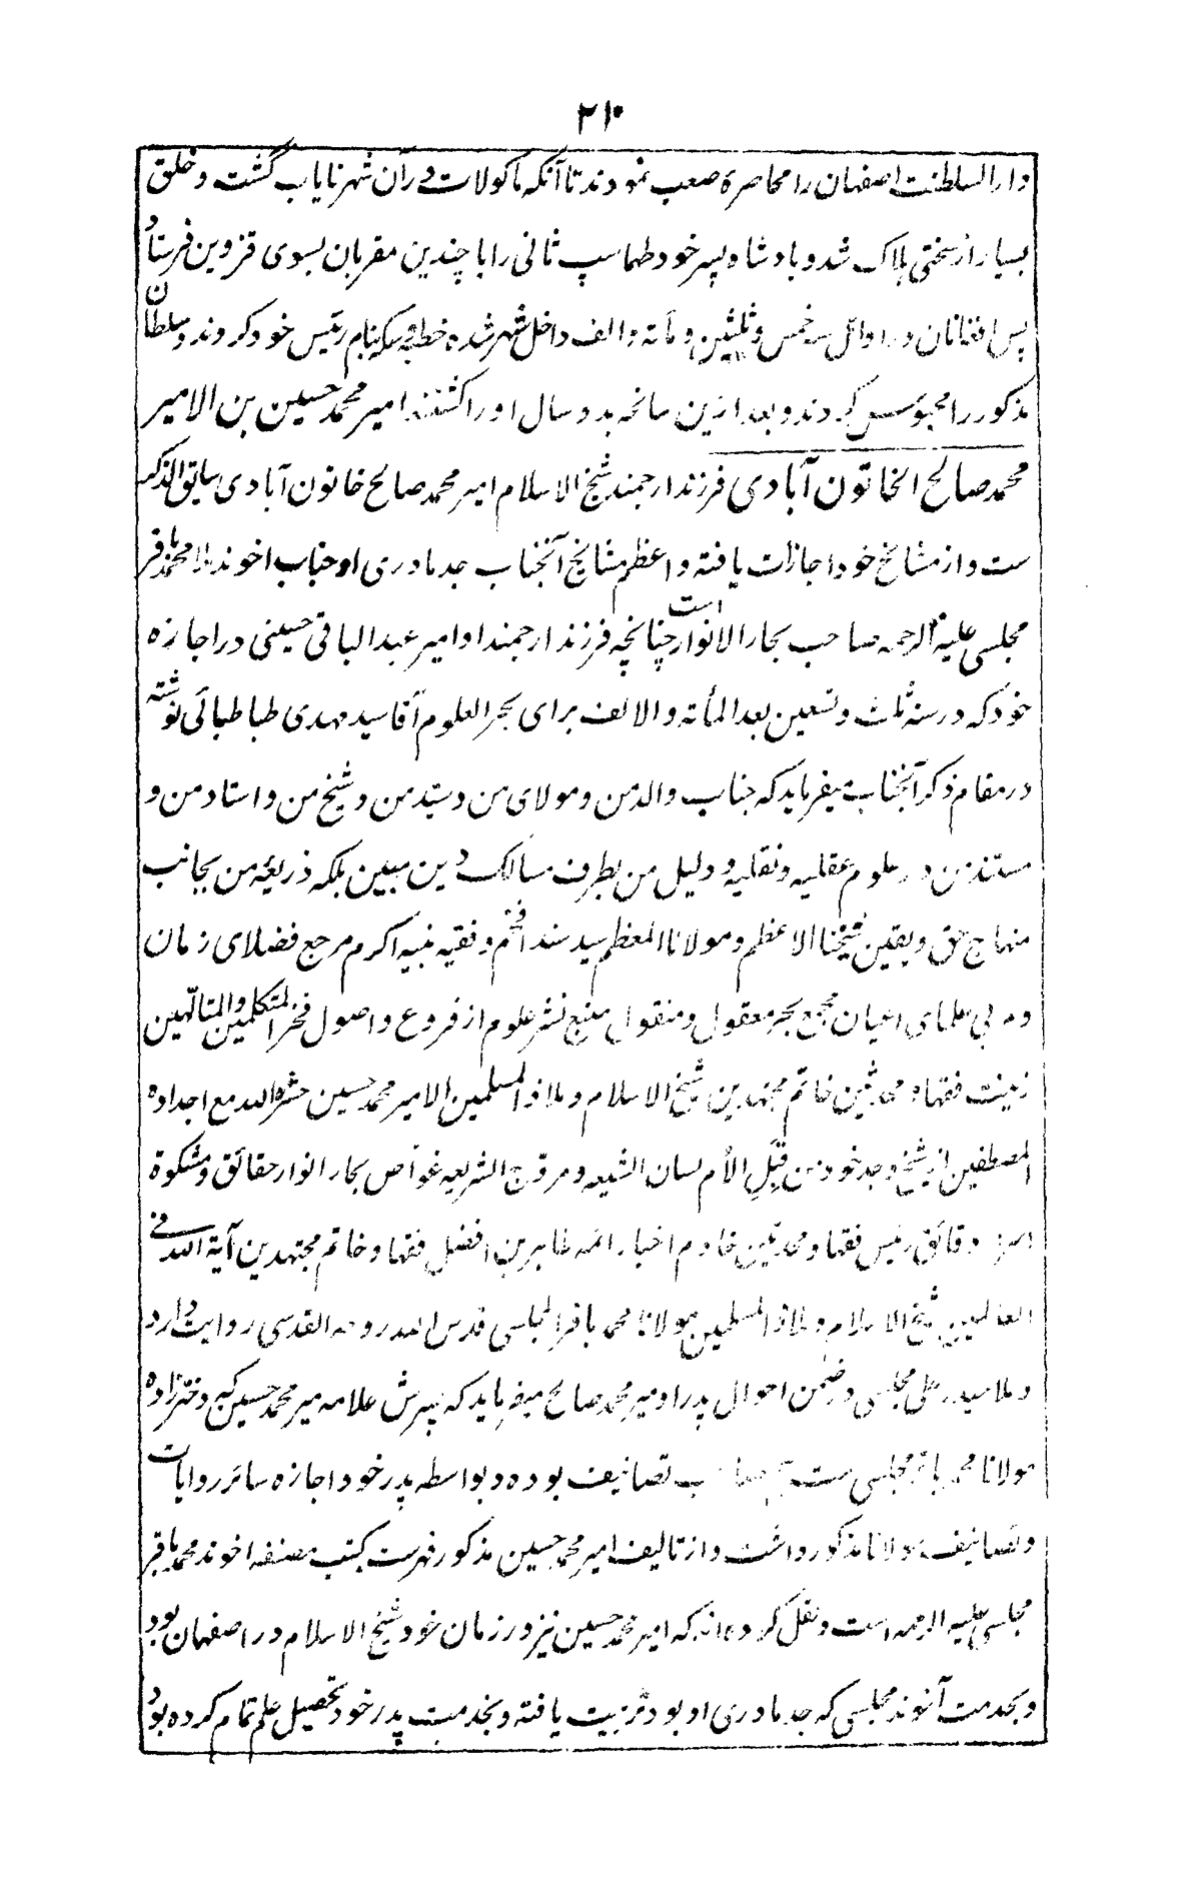 ۲۱۰
دارالسلطنت اصفهان را محاصرهٔ صعب نمودند تا آنکه ماکولات در آن شهر نایاب گشت و خلق
بسیار از سختی هلاک شد و بادشاه پسر خود طهماسپ ثانی را با چندین مقربان بسوی قزوین فرستاد
پس افغانان در اوائل سنه خمس و ثلثین و مأته و الف داخل شهر شده خطبه و سکه بنام رئیس خود کردند و سلطان
مذکور را محبوس کردند و بعد ازین سانحه بدو سال او را کشتند امیر محمد حسین بن الامیر
محمد صالح الخاتون آبادی فرزند ارجمند شیخ الاسلام امیر محمد صالح خاتون آبادی سابق الذکر
ست و از مشائخ خود اجازات یافته و اعظم مشائخ آنجناب جد مادری او جناب اخوند ملا محمد باقر
مجلسی علیه الرحمه صاحب بحار الانوار است چنانچه فرزند ارجمند او امیر عبد الباقی حسینی در اجازه
خود که در سنه ثلث و تسعین بعد المأته و الالف برای بحر العلوم آقا سید مهدی طباطبائی نوشته
در مقام ذکر آنجناب میفرماید که جناب والد من و مولای من و سید من و شیخ من و استاد من و
مستند من در علوم عقلیه و نقلیه و دلیل من بطرف مسالک دین مبین بلکه ذریعه من بجانب
منهاج حق و یقین شیخنا الاعظم و مولانا المعظم سید سند افخم و فقیه نبیه اکرم مرجع فضلای زمان
و مربی علمای اعیان مجمع بحر معقول و منقول منبع نشر علوم از فروع و اصول فخر المتکلمین و المتألهین
زینت فقهاء محدثین خاتم مجتهدین شیخ الاسلام و ملاذ المسلمین الامیر محمد حسین حشره الله مع اجداده
المصطفین از شیخ و جد خود من قبل الأم لسان الشیعه و مروج الشریعه غواص بحار انوار حقائق و مشکوة
اسرار دقائق رئیس فقها و محدثین خادم اخبار ائمه طاهرین افضل فقها و خاتم مجتهدین آیة الله فی
العالمین شیخ الاسلام و ملاذ المسلمین مولانا محمد باقر المجلسی قدس الله روحه القدسی روایت دارد
و ملا حیدر علی مجلسی در ضمن احوال پدر او میر محمد صالح میفرماید که پسرش علامه میر محمد حسین کبیر دختر زاده
مولانا محمد باقر مجلسی ست تصانیف بوده و بواسطه پدر خود اجازه سائر روایات
و تصانیف مولانا مذکور داشت و از تالیف امیر محمد حسین مذکور فهرست کتب مصنفه اخوند محمد باقر
مجلسی علیه الرحمه است و نقل کرده اند که امیر محمد حسین نیز در زمان خود شیخ الاسلام در اصفهان بود
و بخدمت آخوند مجلسی که جد مادری او بود تربیت یافته و بخدمت پدر خود تحصیل علم تمام کرده بود